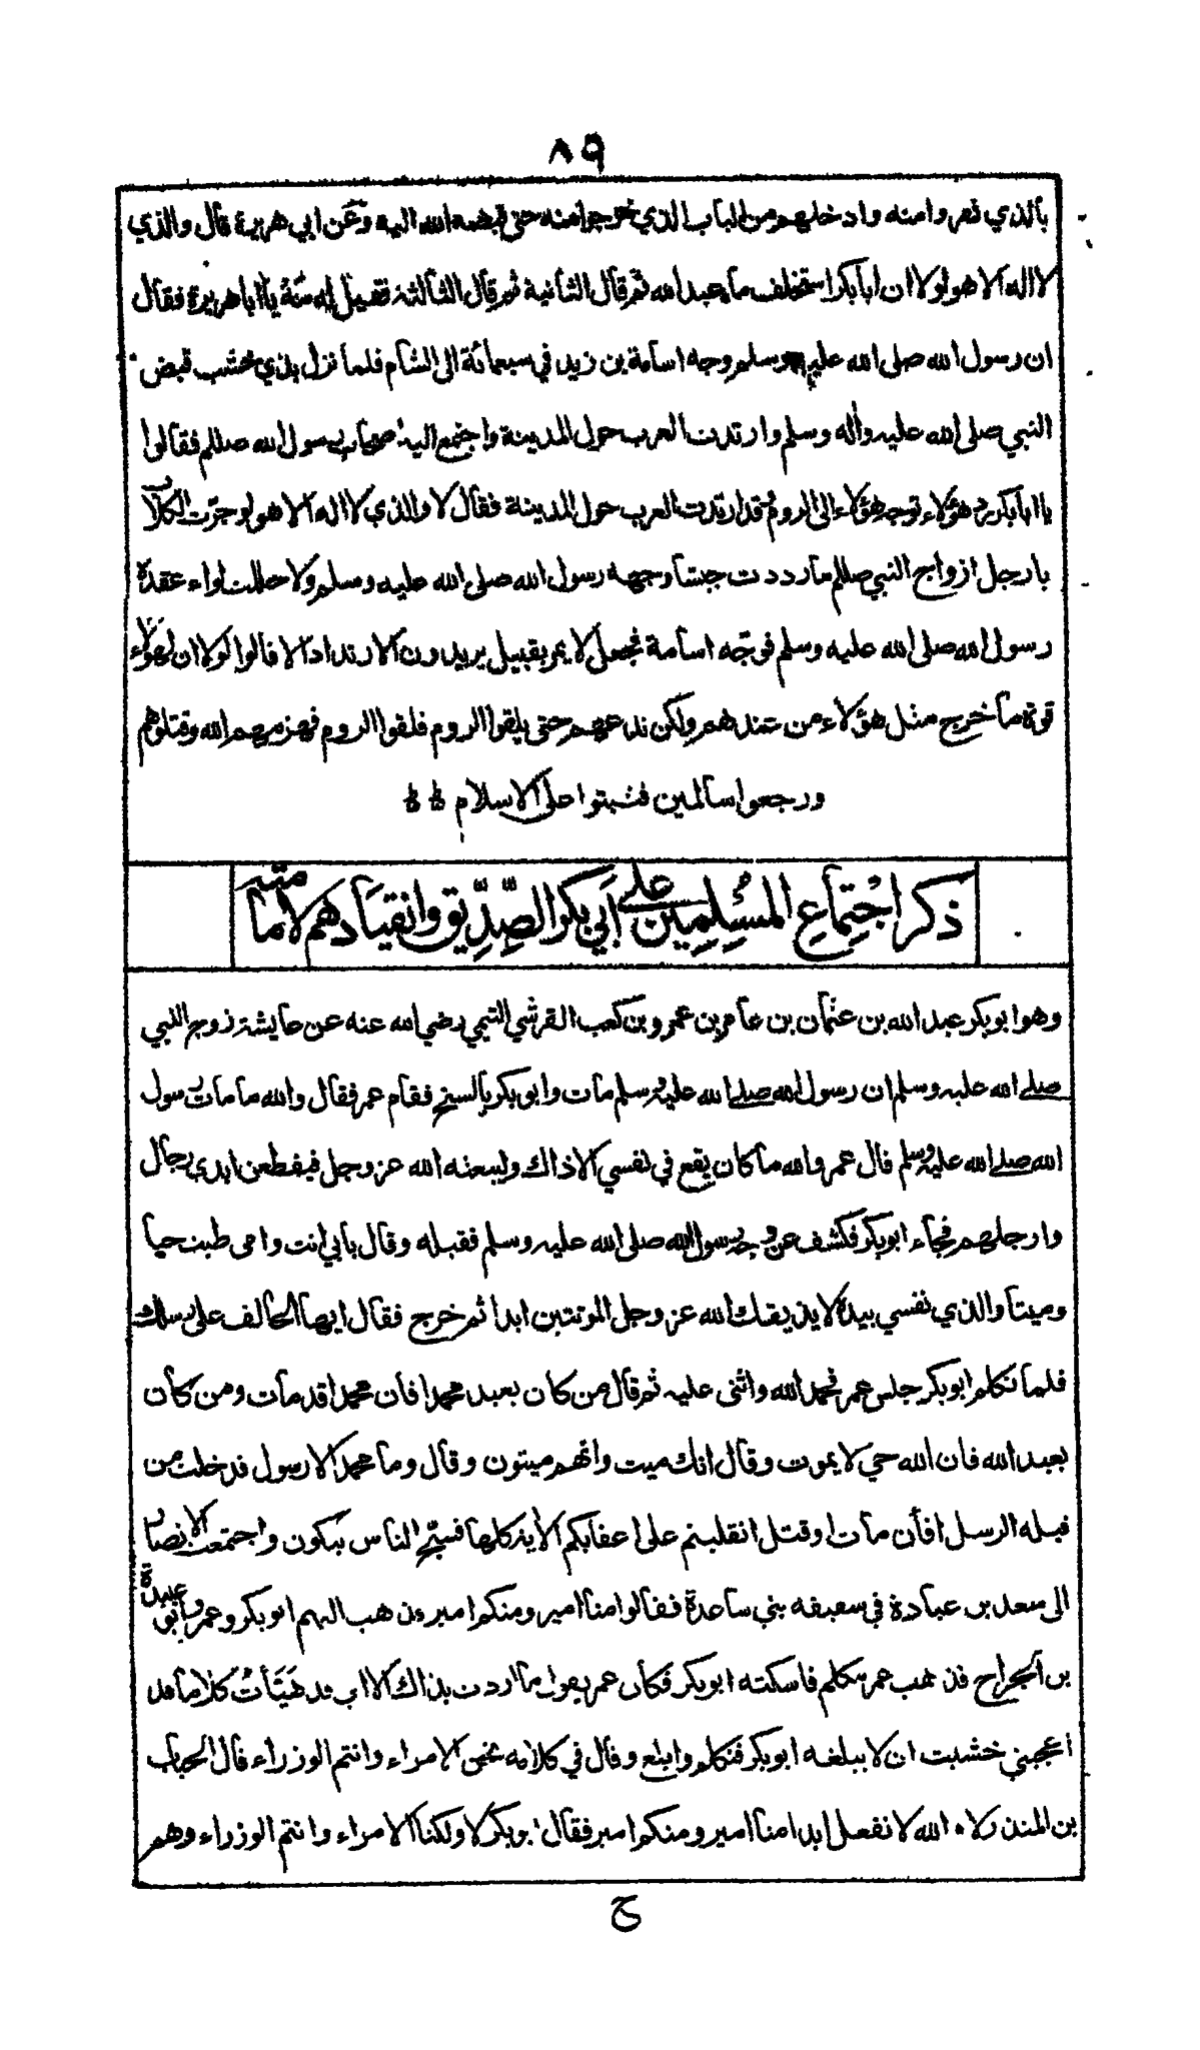 ٨٩
بالذي فروا منه وادخلهم من الباب الذي خرجوا منه حتى قبضه الله اليه وعن ابي هريرة قال والذي
لا اله الا هو لولا ان ابا بكر استخلف ما عبد الله ثم قال الثانية ثم قال الثالثة فقيل له مه يا ابا هريرة فقال
ان رسول الله صلى الله عليه وسلم وجه اسامة بن زيد في سبعمائة الى الشام فلما نزل بذي خشب قبض
النبي صلى الله عليه واله وسلم وارتدت العرب حول المدينة واجتمع اليه اصحاب رسول الله صللم فقالوا
يا ابا بكر رد هؤلاء توجه هؤلاء الى الروم وقد ارتدت العرب حول المدينة فقال لا والذي لا اله الا هو لو جرّت الكلاب
بارجل ازواج النبي صللم ما رددت جيشا وجهه رسول الله صلى الله عليه وسلم ولا حللت لواء عقدة
رسول الله صلى الله عليه وسلم فوجّه اسامة فجعل لا يمر بقبيل يريدون الارتداد الا قالوا لولا ان لهؤلاء
قوة ما خرج مثل هؤلاء من عندهم ولكن ندعهم حتى يلقوا الروم فلقوا الروم فهزمهم الله وقتلوهم
ورجعوا سالمين فثبتوا على الاسلام
ذكر اجْتِماعِ المسُلِمِين على اَبِي بكر الصِّدِّيق وانقيادهم لامامته
وهو ابو بكر عبد الله بن عثمان بن عامر بن عمرو بن كعب القرشي التيمي رضي الله عنه عن عايشة زوج النبي
صلى الله عليه وسلم ان رسول الله صلى الله عليه وسلم مات وابو بكر بالسنح فقام عمر فقال والله ما مات رسول
الله صلى الله عليه وسلم قال عمر والله ما كان يقع في نفسي الا ذاك وليبعثه الله عز وجل فيقطعن ايدي رجال
وارجلهم فجاء ابو بكر فكشف عن وجه رسول الله صلى الله عليه وسلم فقبله وقال بابي انت وامى طبت حيا
وميتا والذي نفسي بيده لا يذيقك الله عز وجل الموتتين ابدا ثم خرج فقال ايها الحالف على رسلك
فلما تكلم ابو بكر جلس عمر فحمد الله واثنى عليه ثم قال من كان يعبد محمدا فان محمدا قد مات ومن كان
يعبد الله فان الله حي لا يموت وقال انك ميت وانهم ميتون وقال وما محمد الا رسول قد خلت من
قبله الرسل افأن مات او قتل انقلبتم على اعقابكم الاية كلها فنشج الناس يبكون واجتمعت الانصار
الى سعد بن عبادة في سقيفه بني ساعدة فقالوا منا امير ومنكم امير فذهب اليهم ابو بكر وعمر وابو عبيدة
بن الجراح فذهب عمر يتكلم فاسكته ابو بكر فكان عمر يقول ما اردت بذاك الا اني قد هَيَّأتُ كلاما قد
اعجبني خشيت ان لا يبلغه ابو بكر فتكلم وابلغ وقال في كلامه نحن الامراء وانتم الوزراء قال الحباب
بن المنذر لا والله لا نفعل ابدا منا امير ومنكم امير فقال ابو بكر لا ولكنا الامراء وانتم الوزراء وهم
ح